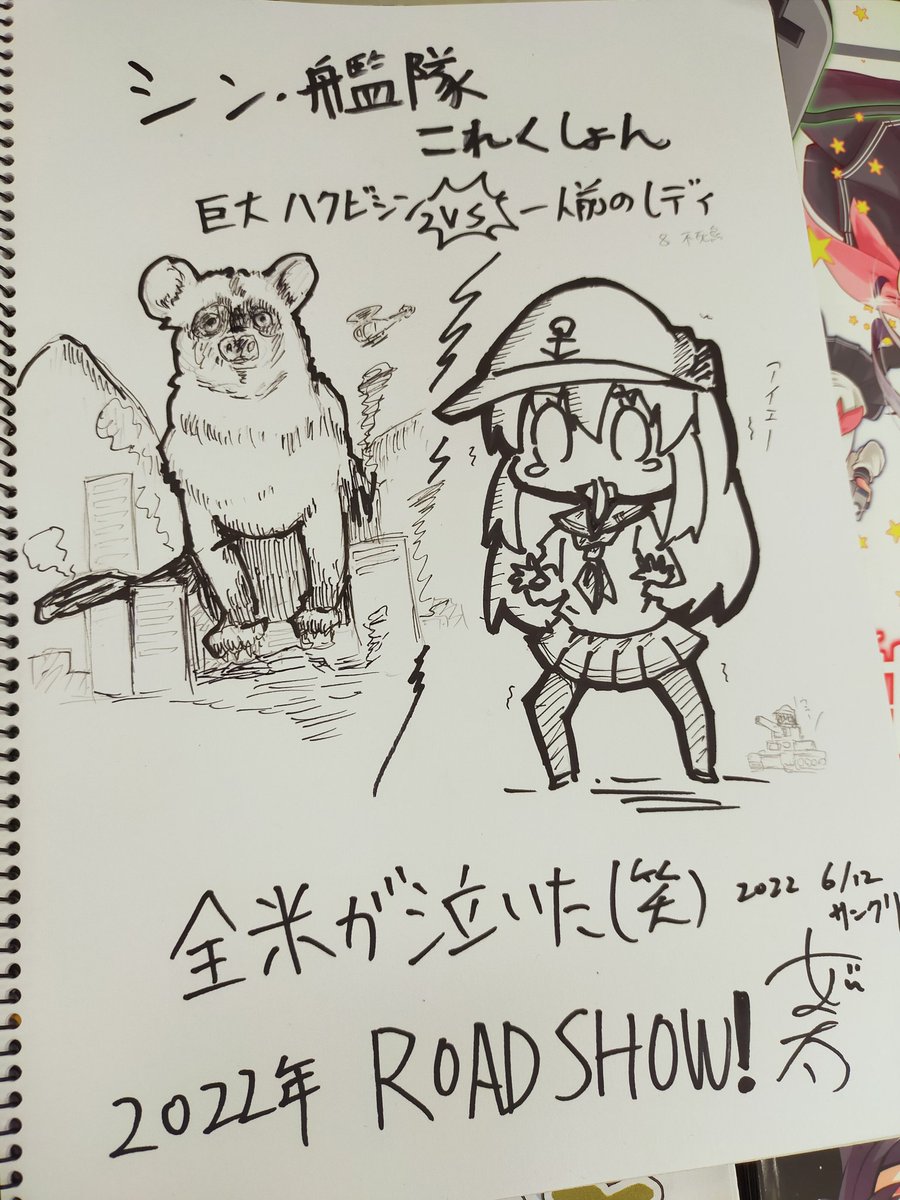 シン・艦隊
これくしょん
巨大 ハクビシン VS 一人前のレディ
アイエー
全米が泣いた(笑)
2022 6/12
サンクリ
2022年 ROAD SHOW!